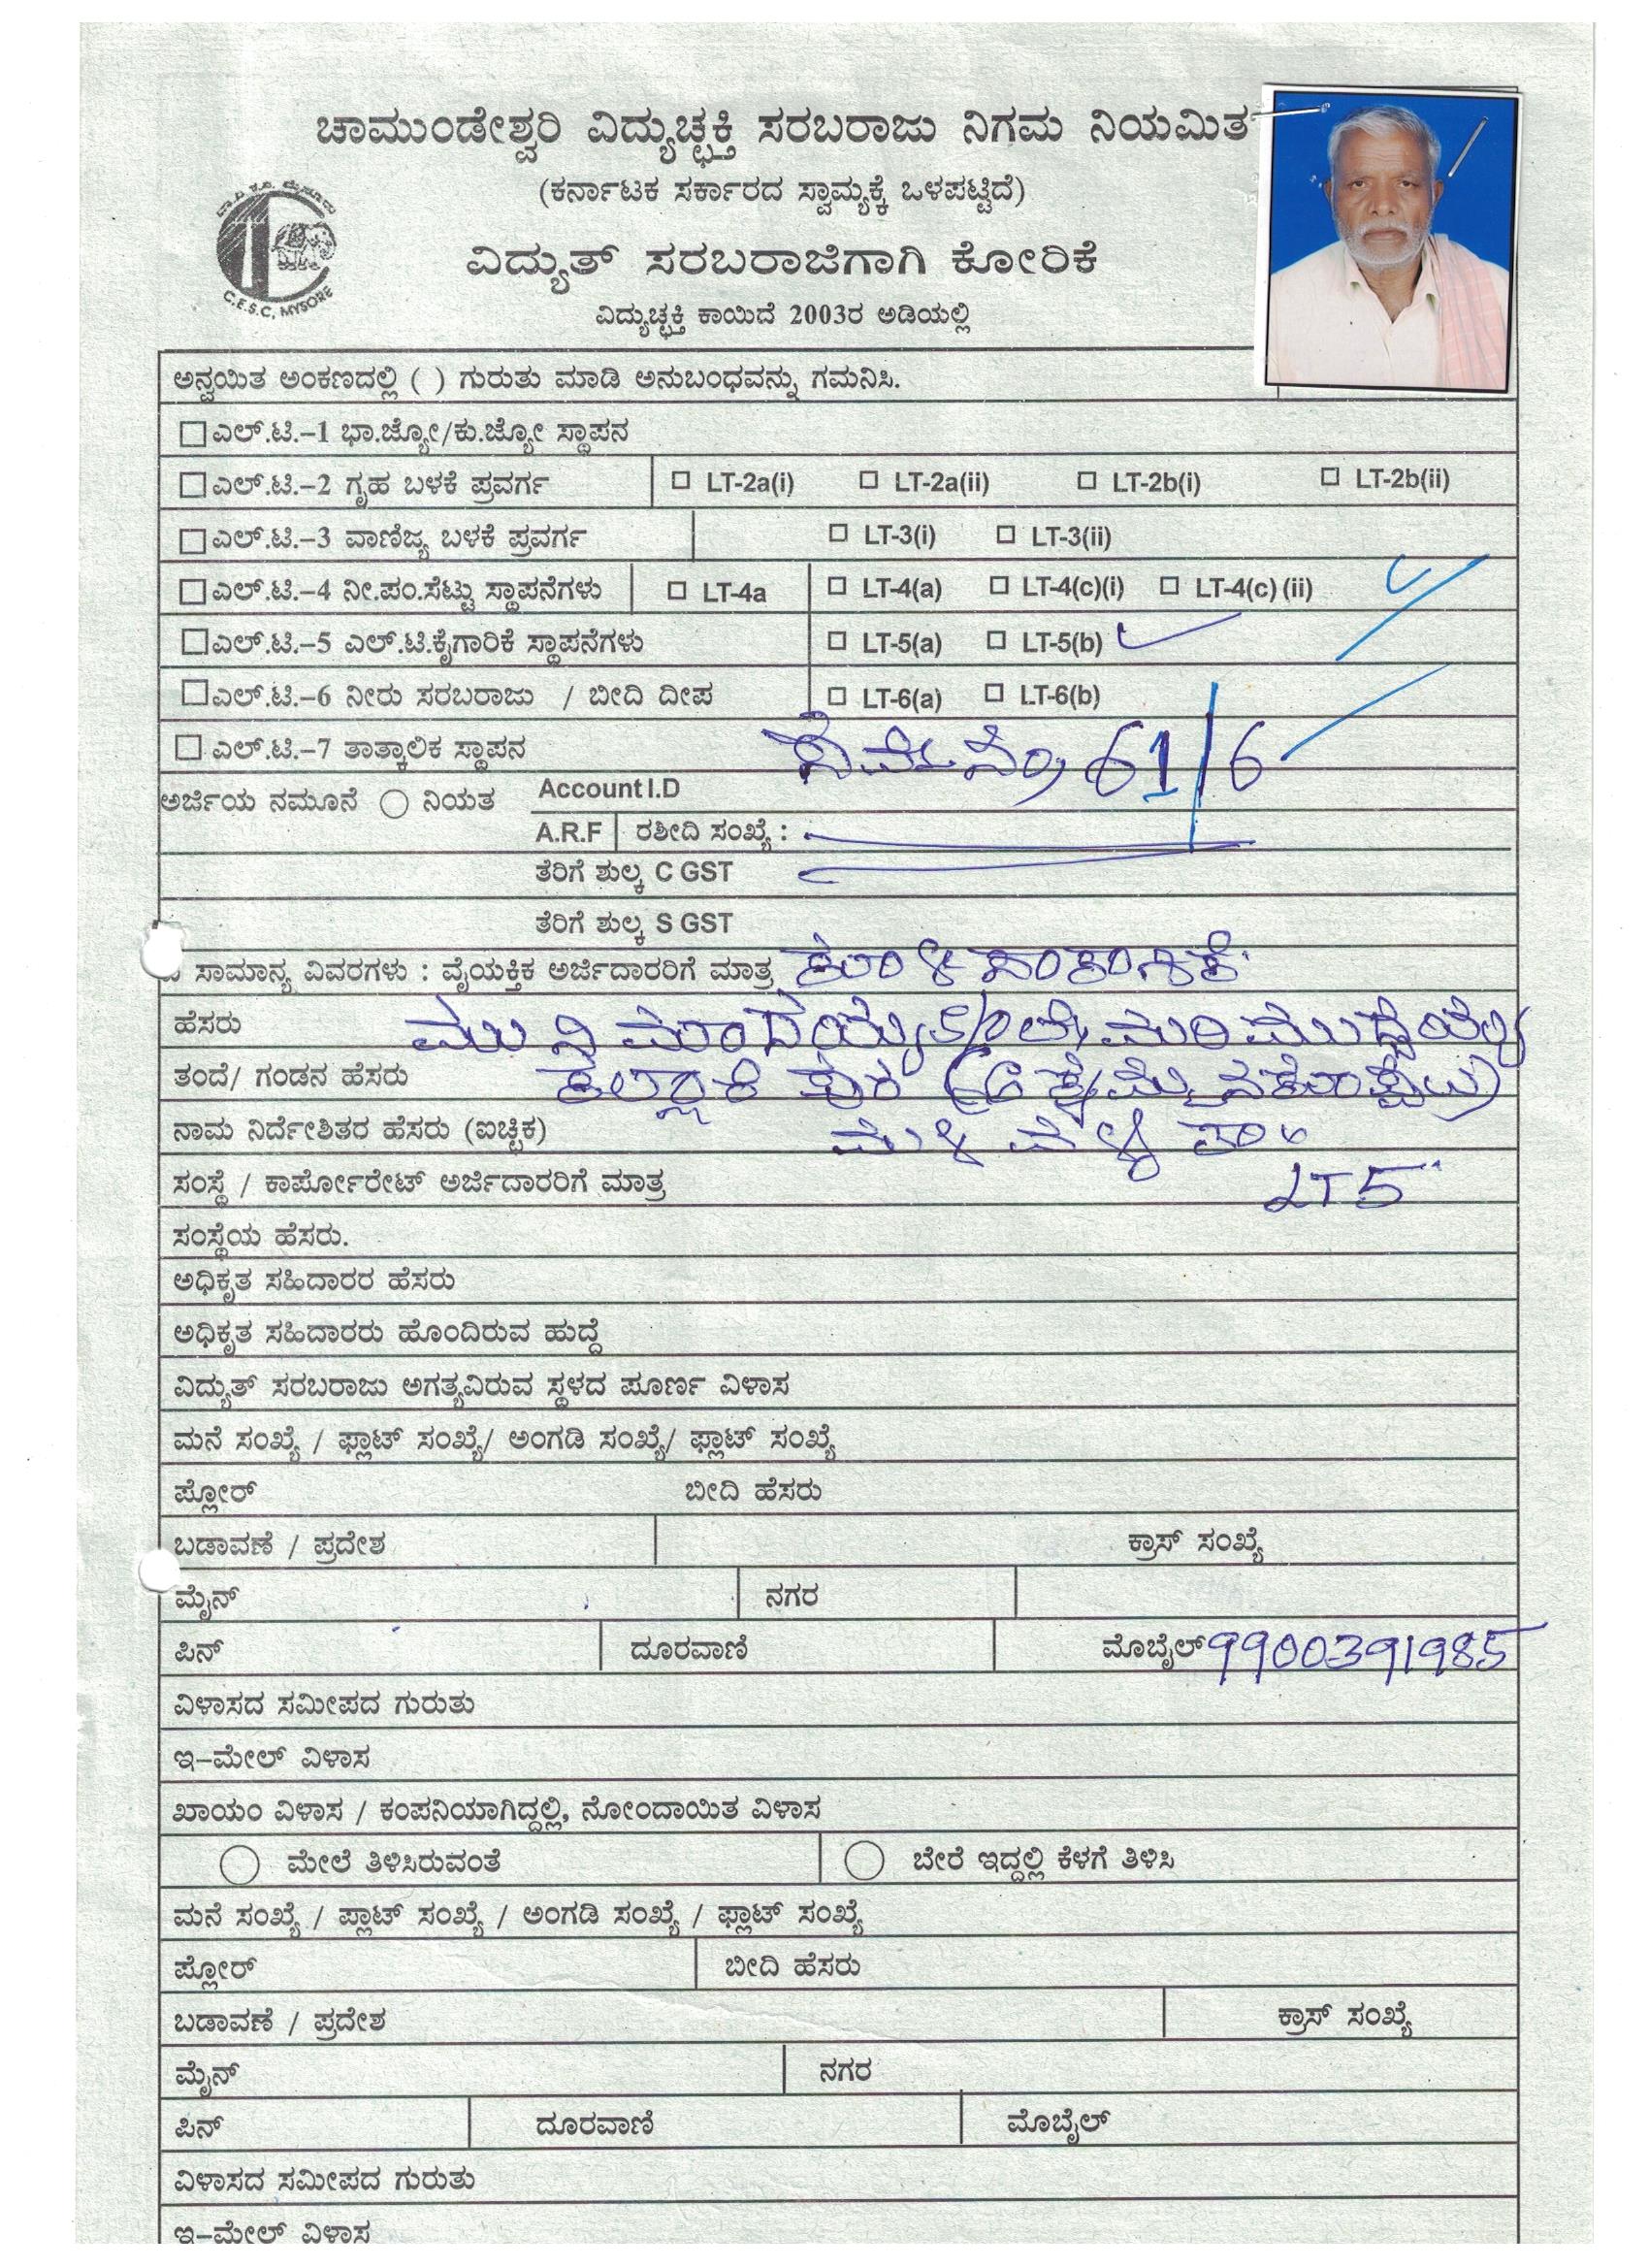 ಚಾಮುಂಡೇಶ್ವರಿ ವಿದ್ಯುಚ್ಛಕ್ತಿ ಸರಬರಾಜು ನಿಗಮ ನಿಯಮಿತ
(ಕರ್ನಾಟಕ ಸರ್ಕಾರದ ಸ್ವಾಮ್ಯಕ್ಕೆ ಒಳಪಟ್ಟಿದೆ)
C.E.S.C, MYSORE
ವಿದ್ಯುತ್ ಸರಬರಾಜಿಗಾಗಿ ಕೋರಿಕೆ
ವಿದ್ಯುಚ್ಛಕ್ತಿ ಕಾಯಿದೆ 2003ರ ಅಡಿಯಲ್ಲಿ
ಅನ್ವಯಿತ ಅಂಕಣದಲ್ಲಿ ( ) ಗುರುತು ಮಾಡಿ ಅನುಬಂಧವನ್ನು ಗಮನಿಸಿ.
ಎಲ್.ಟಿ.-1 ಭಾ.ಜ್ಯೋ/ಕು.ಜ್ಯೋ ಸ್ಥಾಪನ
ಎಲ್.ಟಿ.-2 ಗೃಹ ಬಳಕೆ ಪ್ರವರ್ಗ LT-2a(i) LT-2a(ii) LT-2b(i) LT-2b(ii)
ಎಲ್.ಟಿ.-3 ವಾಣಿಜ್ಯ ಬಳಕೆ ಪ್ರವರ್ಗ LT-3(i) LT-3(ii)
ಎಲ್.ಟಿ.-4 ನೀ.ಪಂ.ಸೆಟ್ಟು ಸ್ಥಾಪನೆಗಳು LT-4a LT-4(a) LT-4(c)(i) LT-4(c) (ii)
ಎಲ್.ಟಿ.-5 ಎಲ್.ಟಿ.ಕೈಗಾರಿಕೆ ಸ್ಥಾಪನೆಗಳು LT-5(a) LT-5(b)
ಎಲ್.ಟಿ.-6 ನೀರು ಸರಬರಾಜು / ಬೀದಿ ದೀಪ LT-6(a) LT-6(b)
ಎಲ್.ಟಿ.-7 ತಾತ್ಕಾಲಿಕ ಸ್ಥಾಪನ 61/6
ಅರ್ಜಿಯ ನಮೂನೆ ನಿಯತ Account I.D
A.R.F ರಶೀದಿ ಸಂಖ್ಯೆ :
ತೆರಿಗೆ ಶುಲ್ಕ C GST
ತೆರಿಗೆ ಶುಲ್ಕ S GST
ಸಾಮಾನ್ಯ ವಿವರಗಳು : ವೈಯಕ್ತಿಕ ಅರ್ಜಿದಾರರಿಗೆ ಮಾತ್ರ
ಹೆಸರು
ತಂದೆ/ ಗಂಡನ ಹೆಸರು
ನಾಮ ನಿರ್ದೇಶಿತರ ಹೆಸರು (ಐಚ್ಛಿಕ)
ಸಂಸ್ಥೆ / ಕಾರ್ಪೋರೇಟ್ ಅರ್ಜಿದಾರರಿಗೆ ಮಾತ್ರ LT5
ಸಂಸ್ಥೆಯ ಹೆಸರು.
ಅಧಿಕೃತ ಸಹಿದಾರರ ಹೆಸರು
ಅಧಿಕೃತ ಸಹಿದಾರರು ಹೊಂದಿರುವ ಹುದ್ದೆ
ವಿದ್ಯುತ್ ಸರಬರಾಜು ಅಗತ್ಯವಿರುವ ಸ್ಥಳದ ಪೂರ್ಣ ವಿಳಾಸ
ಮನೆ ಸಂಖ್ಯೆ / ಫ್ಲಾಟ್ ಸಂಖ್ಯೆ/ ಅಂಗಡಿ ಸಂಖ್ಯೆ/ ಫ್ಲಾಟ್ ಸಂಖ್ಯೆ
ಪ್ಲೋರ್ ಬೀದಿ ಹೆಸರು
ಬಡಾವಣೆ / ಪ್ರದೇಶ ಕ್ರಾಸ್ ಸಂಖ್ಯೆ
ಮೈನ್ ನಗರ
ಪಿನ್ ದೂರವಾಣಿ ಮೊಬೈಲ್ 9900391985
ವಿಳಾಸದ ಸಮೀಪದ ಗುರುತು
ಇ-ಮೇಲ್ ವಿಳಾಸ
ಖಾಯಂ ವಿಳಾಸ / ಕಂಪನಿಯಾಗಿದ್ದಲ್ಲಿ, ನೋಂದಾಯಿತ ವಿಳಾಸ
ಮೇಲೆ ತಿಳಿಸಿರುವಂತೆ ಬೇರೆ ಇದ್ದಲ್ಲಿ ಕೆಳಗೆ ತಿಳಿಸಿ
ಮನೆ ಸಂಖ್ಯೆ / ಪ್ಲಾಟ್ ಸಂಖ್ಯೆ / ಅಂಗಡಿ ಸಂಖ್ಯೆ / ಫ್ಲಾಟ್ ಸಂಖ್ಯೆ
ಪ್ಲೋರ್ ಬೀದಿ ಹೆಸರು
ಬಡಾವಣೆ / ಪ್ರದೇಶ ಕ್ರಾಸ್ ಸಂಖ್ಯೆ
ಮೈನ್ ನಗರ
ಪಿನ್ ದೂರವಾಣಿ ಮೊಬೈಲ್
ವಿಳಾಸದ ಸಮೀಪದ ಗುರುತು
ಇ-ಮೇಲ್ ವಿಳಾಸ